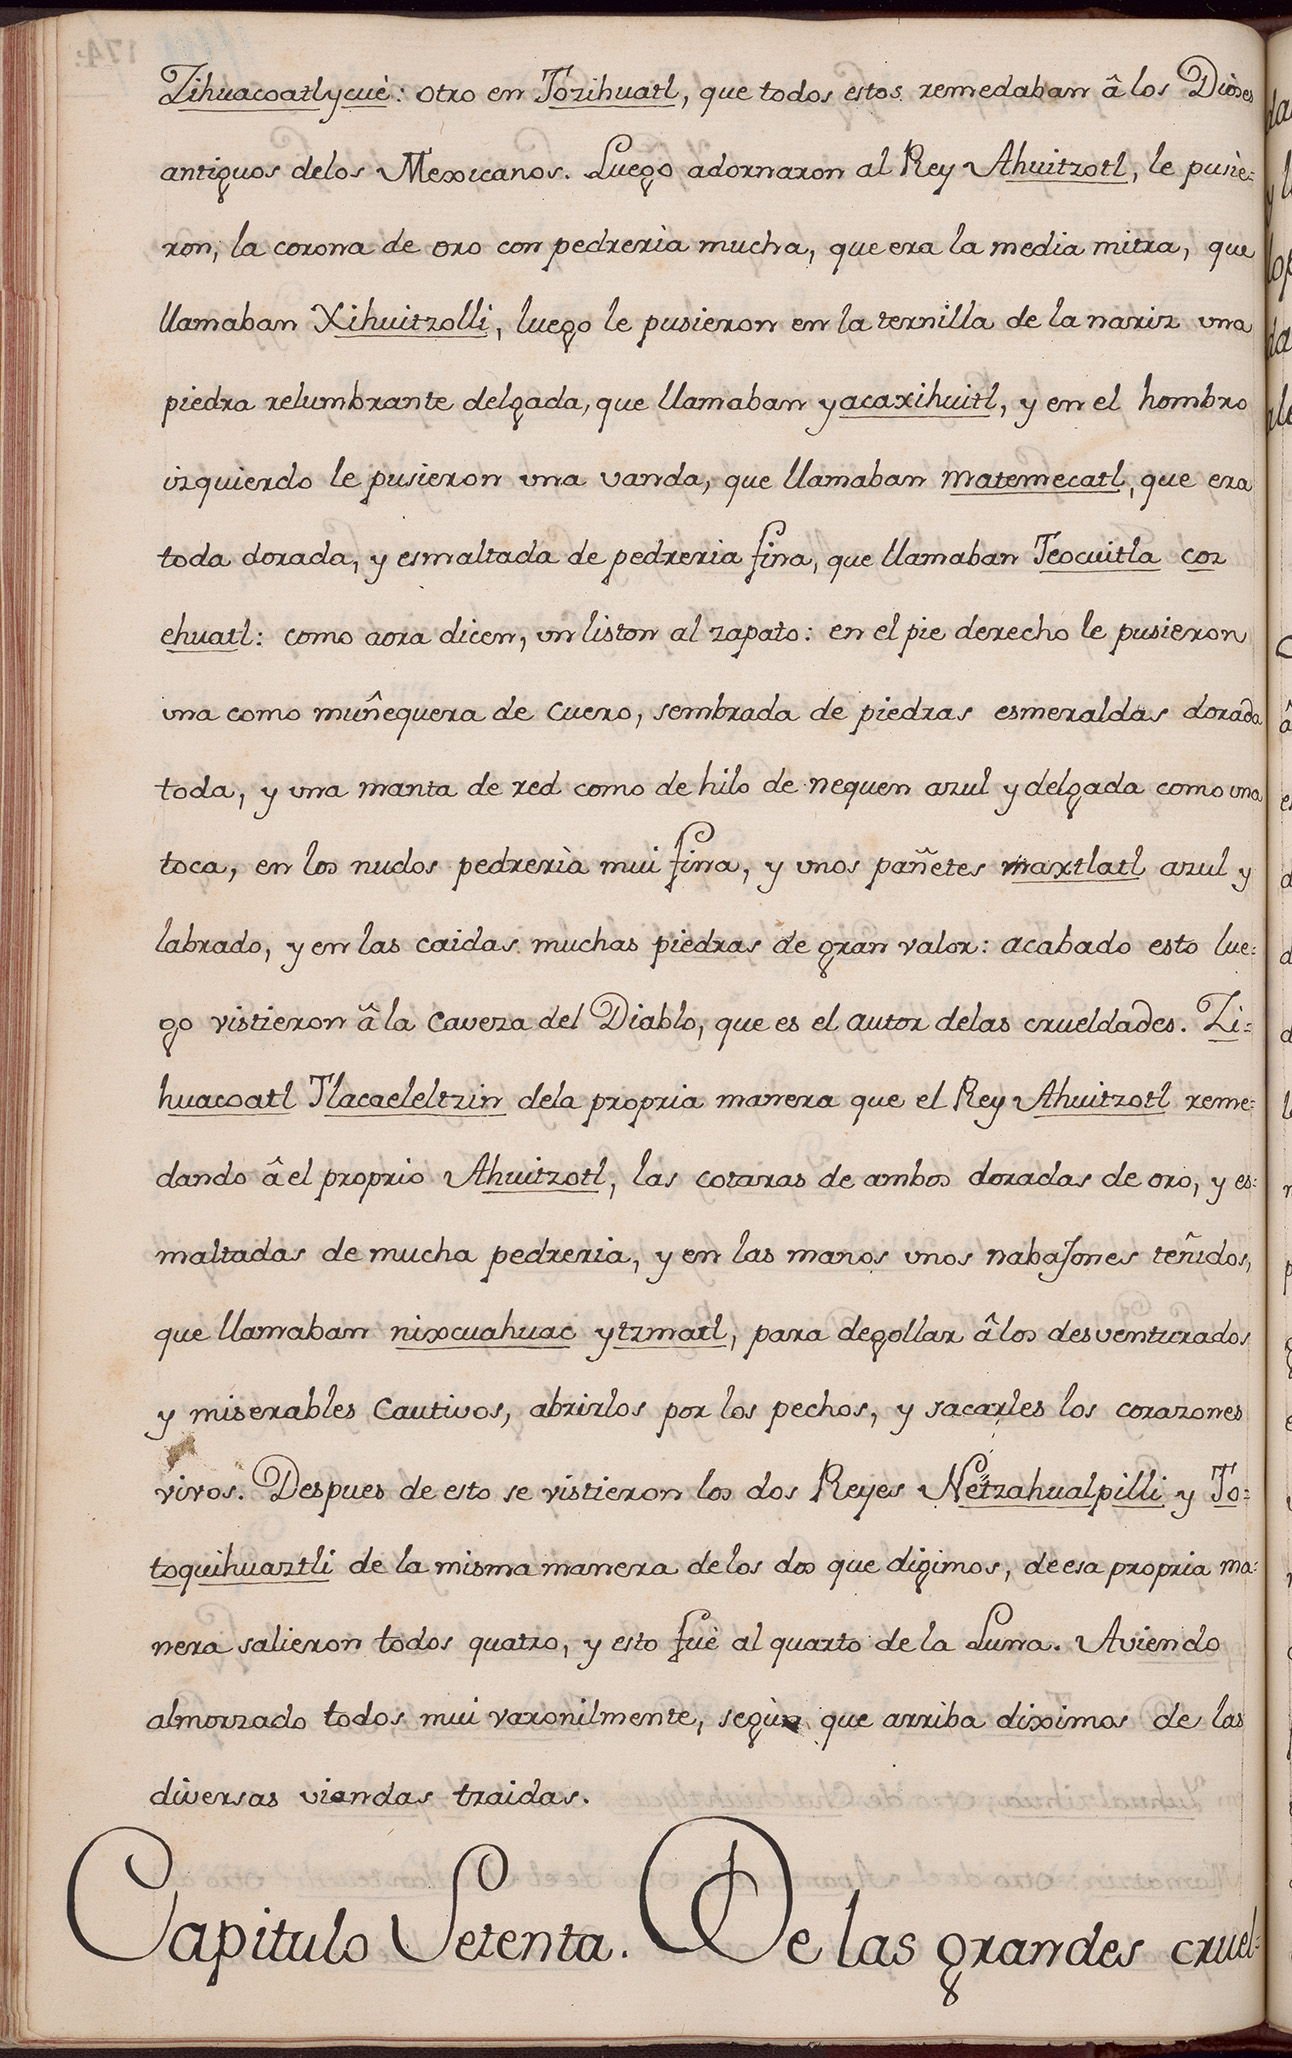 Zihuacoatlycuè: otro en Tozihuatl, que todos estos remedaban â los Dioses
antiguos delos Mexicanos. Luego adornaron al Rey Ahuitzotl, le pusie=
ron, la corona de oro con pedrerìa mucha, que era la media mitra, que
llamaban Xihuitzolli, luego le pusieron en la ternilla de la nariz vna
piedra relumbrante delgada, que llamaban yacaxihuitl, y en el hombro
izquierdo le pusieron vna vanda, que llamaban matemecatl, que era
toda dorada, y esmaltada de pedreria fina, que llamaban Teocuitla coz
ehuatl: como aora dicen, vn liston al zapato: en el pie derecho le pusieron
vna como muñequera de cuero, sembrada de piedras esmeraldas dorada
toda, y vna manta de red como de hilo de nequen azul y delgada como vna
toca, en los nudos pedrerìa mui fina, y vnos pañetes maxtlatl azul y
labrado, y en las caidas muchas piedras de gran valor: acabado esto lue=
go vistieron â la Caveza del Diablo, que es el autor delas crueldades. Zi=
huacoatl Tlacaeleltzin dela propria manera que el Rey Ahuitzotl reme=
dando â el proprio Ahuitzotl, las cotaras de ambos doradas de oro, y es=
maltadas de mucha pedreria, y en las manos vnos nabajones teñidos,
que llamaban nixcuahuac ytzmatl, para degollar â los desventurados
y miserables Cautivos, abrirlos por los pechos, y sacarles los corazones
vivos. Despues de esto se vistieron los dos Reyes Netzahualpilli y To=
toquihuaztli de la misma manera delos dos que digimos, de esa propria ma=
nera salieron todos quatro, y esto fuè al quarto de la Luna. Aviendo
almorzado todos mui varonilmente, segùn que arriba diximos de las
diversas viandas traidas.
Capitulo Setenta. De las grandes cruel=